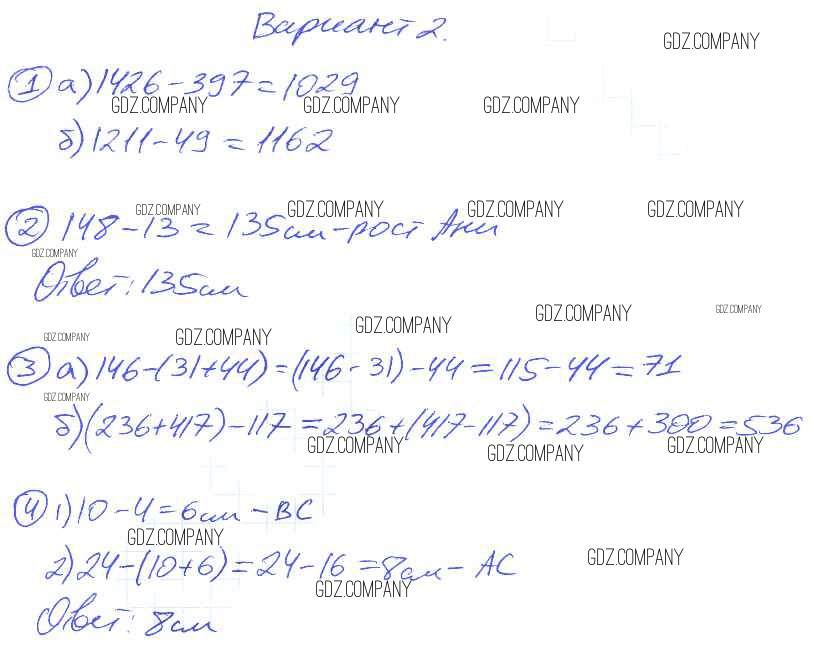 Вариант 2.
GDZ.COMPANY
① а) 1426 - 397 = 1029
GDZ.COMPANY GDZ.COMPANY GDZ.COMPANY
б) 1211 - 49 = 1162
GDZ.COMPANY GDZ.COMPANY GDZ.COMPANY GDZ.COMPANY
② 148 - 13 = 135см - рост Ани
GDZ.COMPANY
Ответ: 135см
GDZ.COMPANY GDZ.COMPANY
GDZ.COMPANY GDZ.COMPANY GDZ.COMPANY
③ а) 146 - (31 + 44) = (146 - 31) - 44 = 115 - 44 = 71
GDZ.COMPANY
б) (236 + 417) - 117 = 236 + (417 - 117) = 236 + 300 = 536
GDZ.COMPANY GDZ.COMPANY GDZ.COMPANY
④ 1) 10 - 4 = 6см - ВС
GDZ.COMPANY
2) 24 - (10 + 6) = 24 - 16 = 8см - АС
GDZ.COMPANY
GDZ.COMPANY
Ответ: 8см